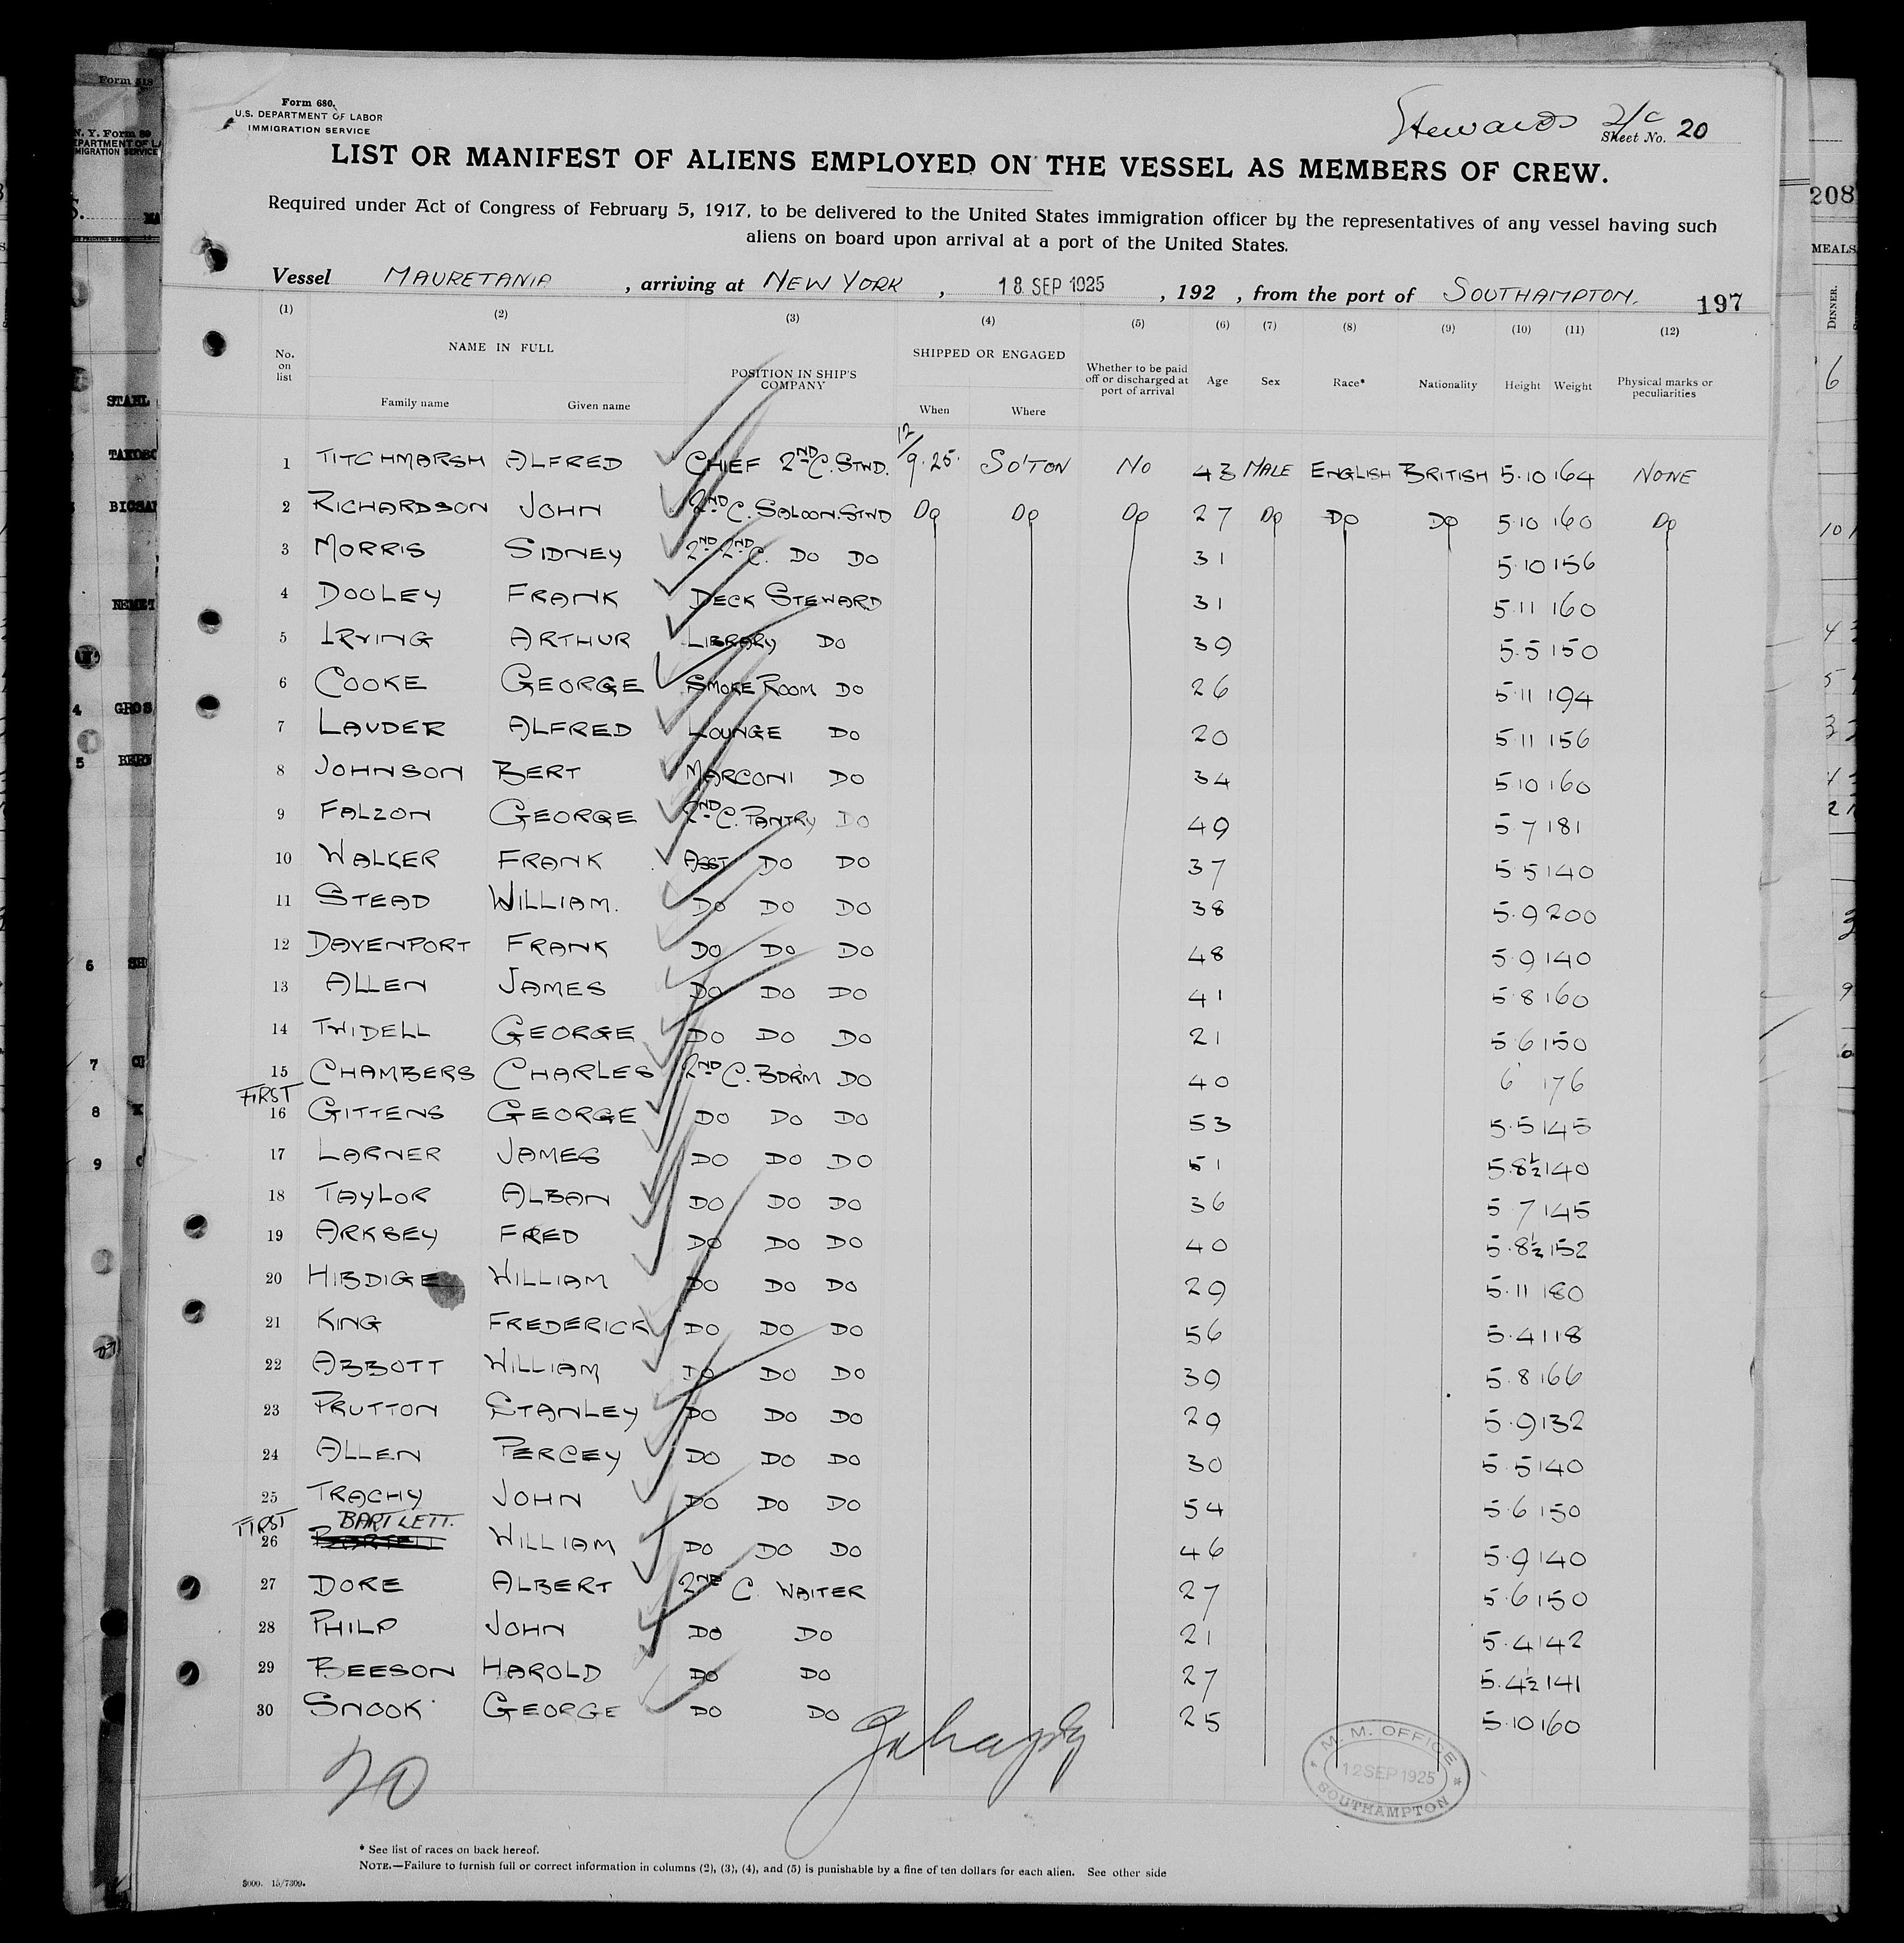 Form 680.
U.S. DEPARTMENT OF LABOR
IMMIGRATION SERVICE
Stewards 2/C
Sheet No. 20
LIST OR MANIFEST OF ALIENS EMPLOYED ON THE VESSEL AS MEMBERS OF CREW.
Required under Act of Congress of February 5, 1917, to be delivered to the United States immigration officer by the representatives of any vessel having such
aliens on board upon arrival at a port of the United States.
Vessel MAURETANIA , arriving at NEW YORK , 18 SEP 1925 , 192 , from the port of SOUTHAMPTON. 197
(1) (2) (3) (4) (5) (6) (7) (8) (9) (10) (11) (12)
No. on list NAME IN FULL POSITION IN SHIP'S COMPANY SHIPPED OR ENGAGED Whether to be paid off or discharged at port of arrival Age Sex Race* Nationality Height Weight Physical marks or peculiarities
Family name Given name When Where
1 TITCHMARSH ALFRED CHIEF 2ND C. STWD. 12/9.25. SO'TON NO 43 MALE ENGLISH BRITISH 5.10 164 NONE
2 RICHARDSON JOHN 2ND C. SALOON. STWD DO DO DO 27 DO DO DO 5.10 160 DO
3 MORRIS SIDNEY 2ND 2ND C. DO DO 31 5.10 156
4 DOOLEY FRANK DECK STEWARD 31 5.11 160
5 IRVING ARTHUR LIBRARY DO 39 5.5 150
6 COOKE GEORGE SMOKE ROOM DO 26 5.11 194
7 LAUDER ALFRED LOUNGE DO 20 5.11 156
8 JOHNSON BERT MARCONI DO 34 5.10 160
9 FALZON GEORGE 2ND C. PANTRY DO 49 5.7 181
10 WALKER FRANK ASST DO DO 37 5 5 140
11 STEAD WILLIAM. DO DO DO 38 5.9 200
12 DAVENPORT FRANK DO DO DO 48 5.9 140
13 ALLEN JAMES DO DO DO 41 5.8 160
14 TWIDELL GEORGE DO DO DO 21 5 6 150
15 CHAMBERS CHARLES 2ND C. BDRM DO 40 6' 176
FIRST
16 GITTENS GEORGE DO DO DO 53 5.5 145
17 LARNER JAMES DO DO DO 51 5.8½ 140
18 TAYLOR ALBAN DO DO DO 36 5 7 145
19 ARKSEY FRED DO DO DO 40 5.8½ 152
20 HIBDIGE WILLIAM DO DO DO 29 5.11 180
21 KING FREDERICK DO DO DO 56 5.4 118
22 ABBOTT WILLIAM DO DO DO 39 5.8 166
23 PRUTTON STANLEY DO DO DO 29 5.9 132
24 ALLEN PERCEY DO DO DO 30 5.5 140
25 TRACHY JOHN DO DO DO 54 5.6 150
FIRST BARTLETT.
26 WILLIAM DO DO DO 46 5.9 140
27 DORE ALBERT 2ND C. WAITER 27 5.6 150
28 PHILP JOHN DO DO 21 5.4 142
29 BEESON HAROLD DO DO 27 5.4½ 141
30 SNOOK GEORGE DO DO 25 5.10 160
20
M. M. OFFICE
12 SEP 1925
SOUTHAMPTON
* See list of races on back hereof.
NOTE.—Failure to furnish full or correct information in columns (2), (3), (4), and (5) is punishable by a fine of ten dollars for each alien. See other side
3000. 15/7309.